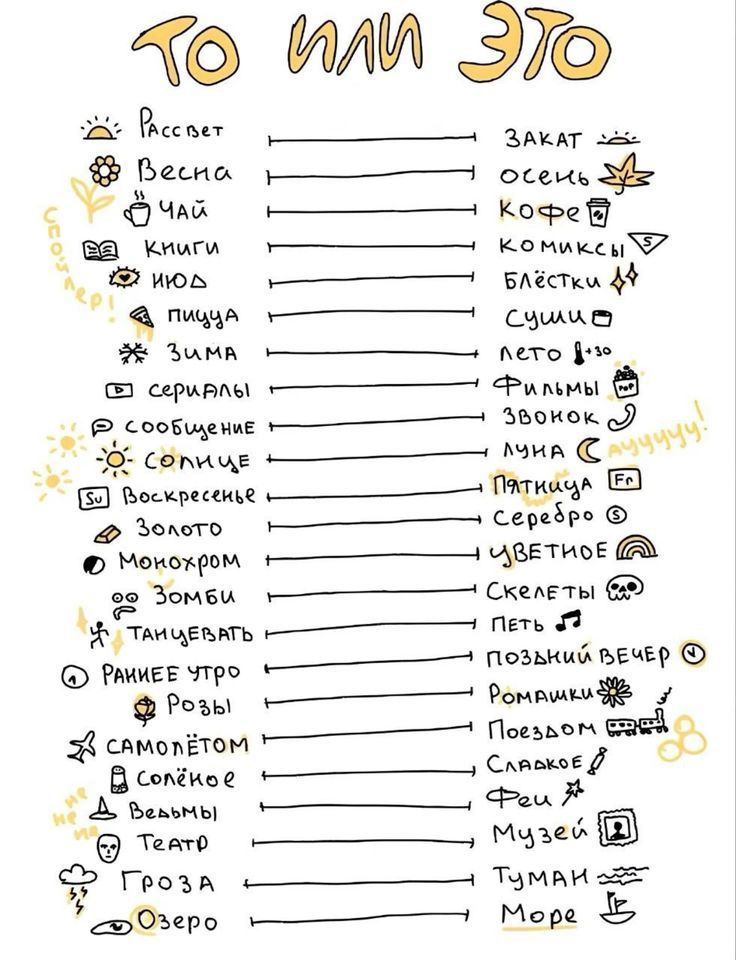 ТО ИЛИ ЭТО
Рассвет ЗАКАТ
Весна осень
ЧАЙ Кофе
Книги комиксы
СПОЙЛЕР!
нюд Блёстки
пицца суши
Зима лето +30
сериалы Фильмы POP
сообщение звонок
солнце луна АУУУУУУ!
Su Воскресенье Пятница Fr
Золото Серебро S
Монохром цветное
Зомби Скелеты
Танцевать Петь
Раннее утро поздний вечер
Розы Ромашки
самолётом Поездом
солёное Сладкое
не не па
Ведьмы Феи
Театр Музей
Гроза Туман
Озеро Море